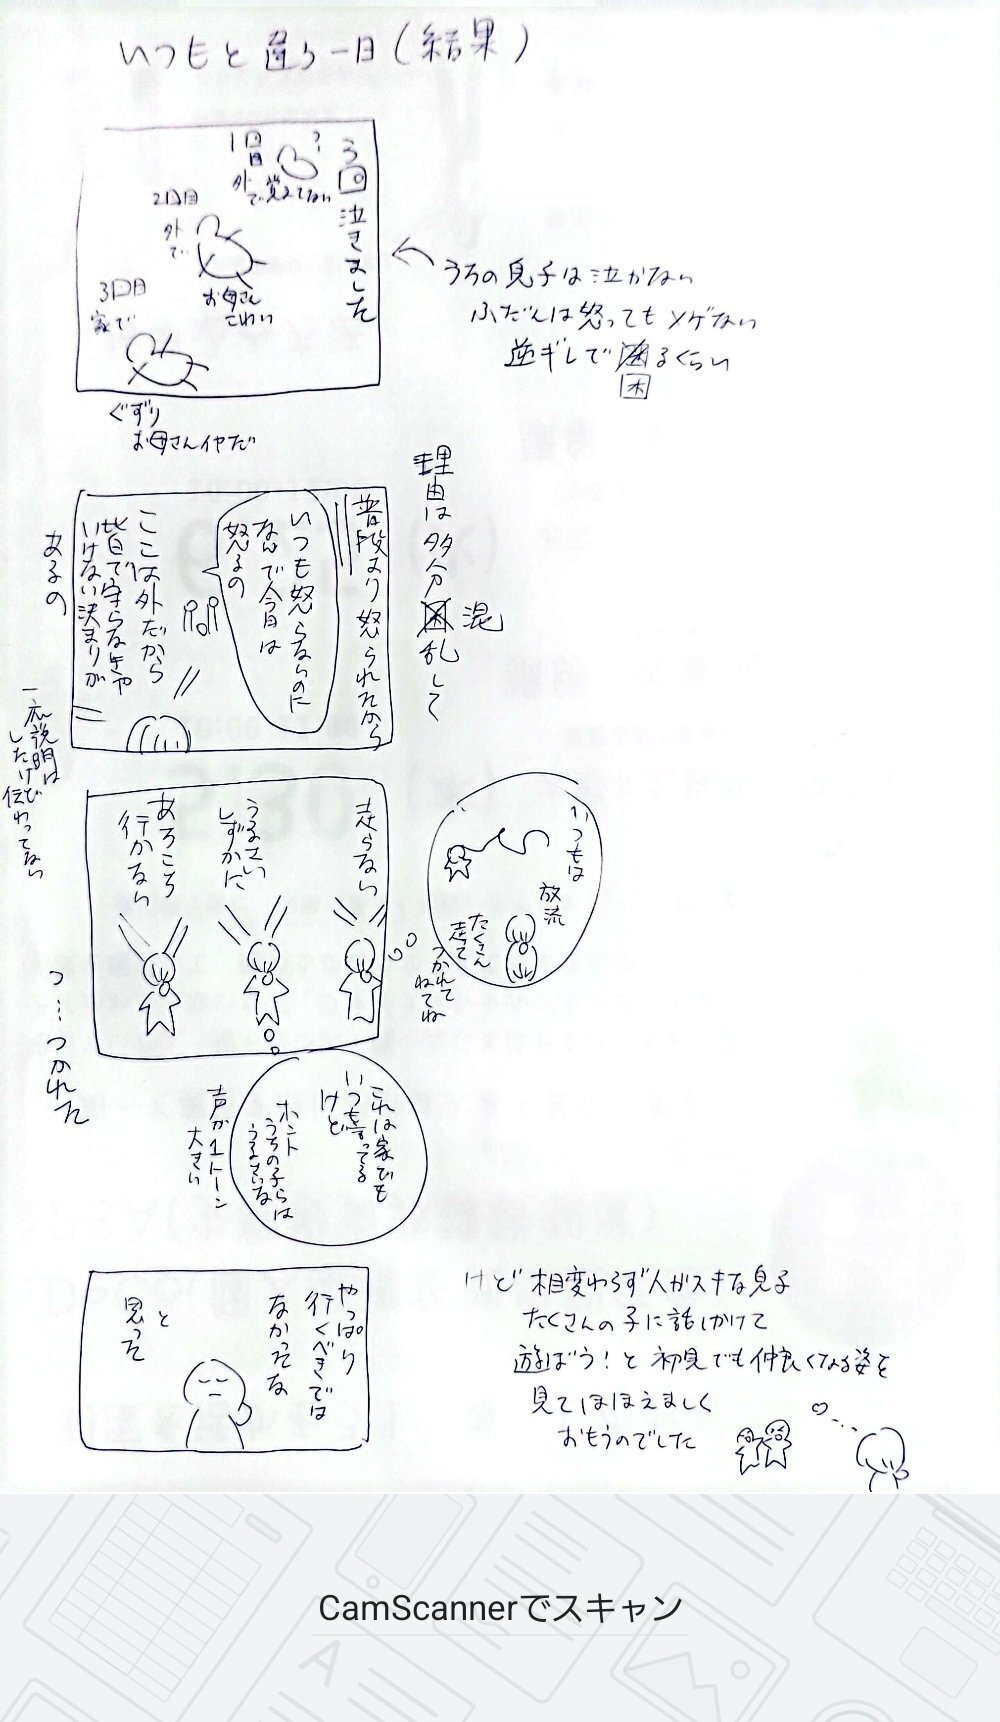 いつもと違う一日(結果)
3回泣きました
1回目
?
外で覚えてない
2回目
外で
お母さん
こわい
3回目
家で
ぐずり
お母さんイヤだ
うちの息子は泣かない
ふだんは怒ってもメゲない
逆ギレで困るくらい
理由は多分混乱して
普段より怒られたから
いつも怒らないのに
なんで今日は
怒るの
ここは外だから
皆で守らなきゃ
いけない決まりが
あるの
一応説明は
したけど
伝わってない
走らない
うるさい
しずかに
あろころ
行かない
いつもは
放流
たくさん
走って
つかれて
ねてね
つ…つかれた
これは家でも
いつも言ってる
けど
ホント
うちの子らは
うるさいな
声が1トーン
大きい
やっぱり
行くべきでは
なかったな
と
思った
けど相変わらず人がスキな息子
たくさんの子に話しかけて
遊ぼう!と初見でも仲良くなる姿を
見てほほえましく
おもうのでした
CamScannerでスキャン